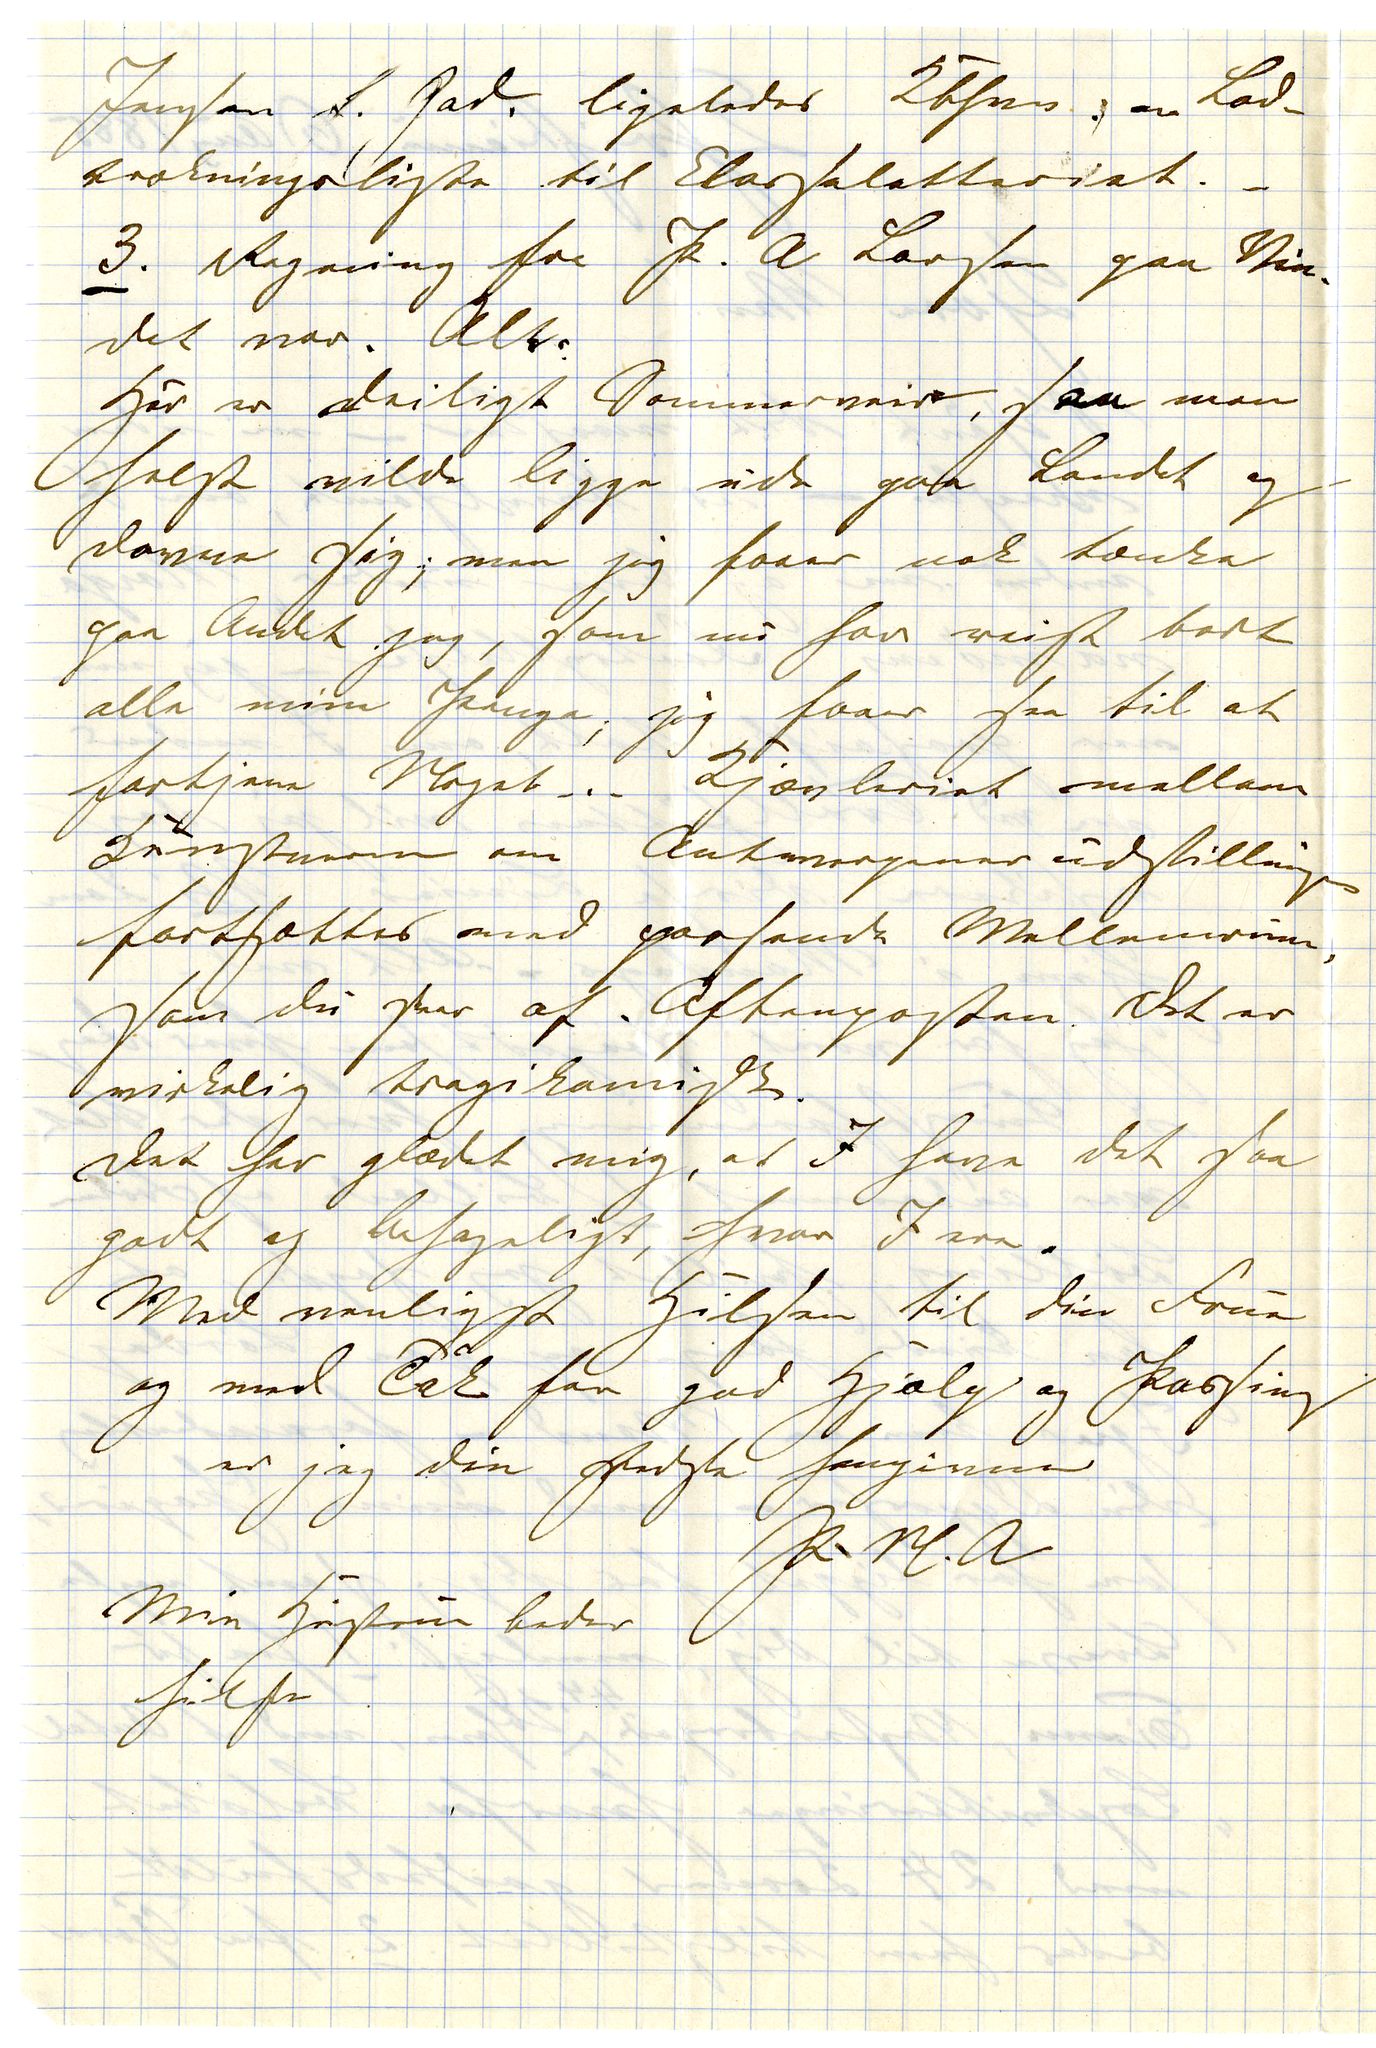 Jensen & Gad. ligeledes Kbhvn.; en Lod-
trækningsliste til Classelotteriet. -
3. Regning fra P. A Larsen paa Vin.
det var. Alt.
Her er deiligt Sommerveir, saa man
helst vilde ligge ude paa Landet og
dovne sig; men jeg faaer nok tænke
paa Andet jeg, som nu har reist bort
alle mine Penge; jeg faaer see til at
fortjene Noget -.- Kjævleriet mellem
Kunstnerne om Antwerpenerudstillingen
fortsættes med passende Mellemrum,
som du seer af Aftenposten. Det er
virkelig tragikomisk.
Det har glædet mig, at I have det saa
godt og behageligt, hvor I ere.
Med venligst Hilsen til din Frue
og med Tak for god Hjælp og
er jeg din stedse hengivne
P. M. A
Min Hustru beder
hilse